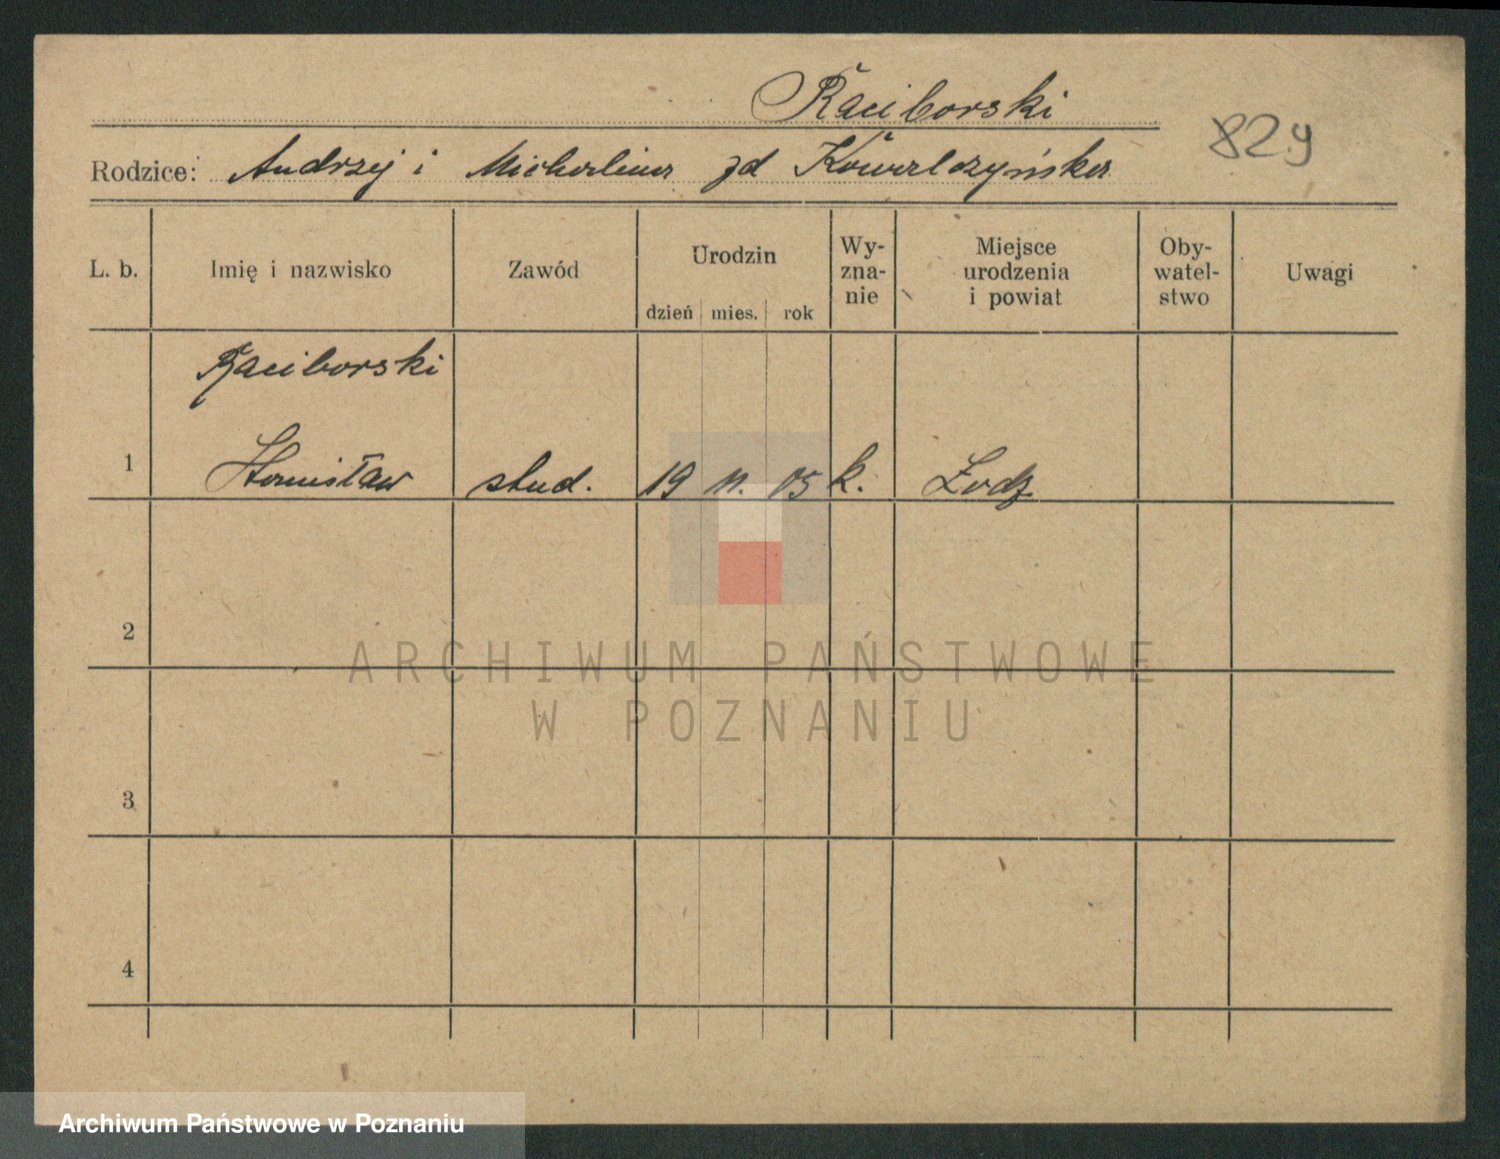 Raciborski
829
Rodzice: Andrzej i Michalina zd Kowalczyńska
L. b.
Imię i nazwisko
Zawód
Urodzin
dzień mies. rok
Wy-
zna-
nie
Miejsce
urodzenia
i powiat
Oby-
watel-
stwo
Uwagi
Raciborski
1 Stanisław stud. 19 11. 05 k. Łodź
2
3
4
ARCHIWUM PAŃSTWOWE
W POZNANIU
Archiwum Państwowe w Poznaniu